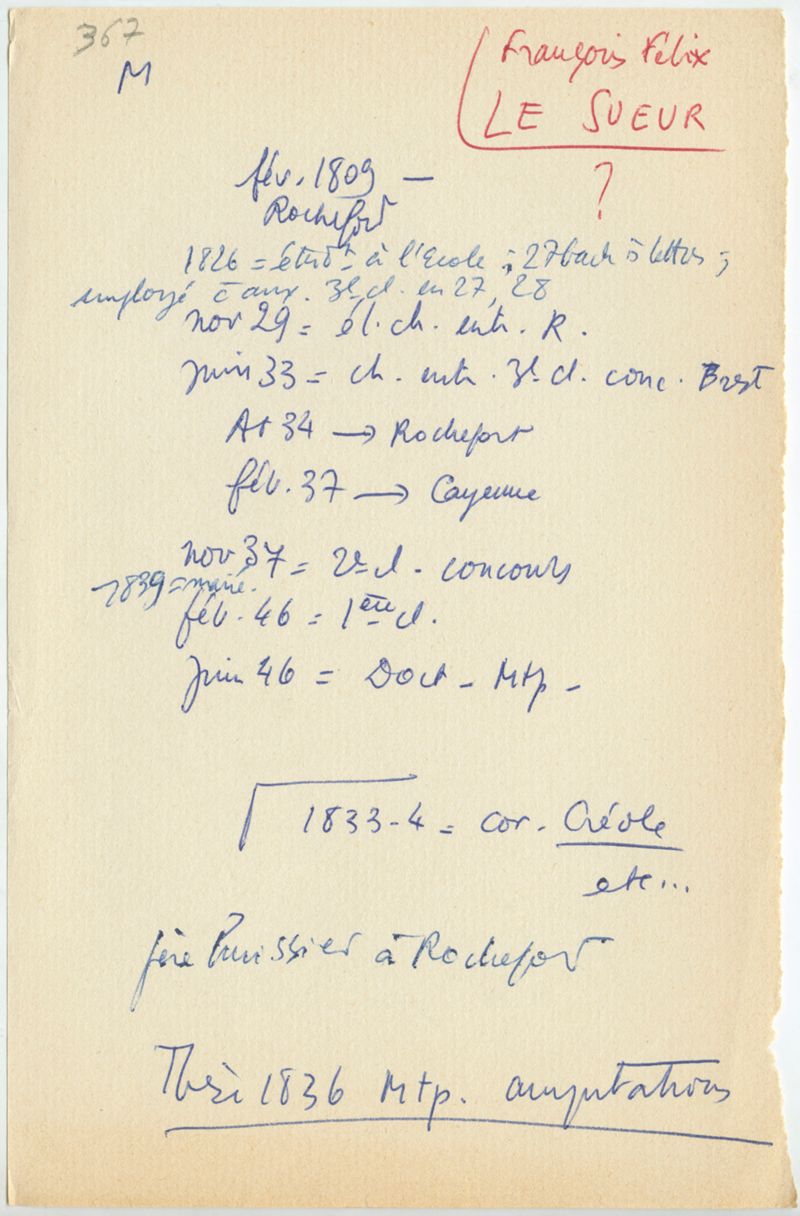 367
M
François Félix
LE SUEUR
?
fév. 1809 —
Rochefort
1826 = étudt à l'Ecole ; 27 bach ès lettres ;
employé c aux. 3e cl. en 27, 28
nov 29 = él. ch. entr. R.
juin 33 = ch. entr. 3e cl. conc. Brest
At 34 → Rochefort
fév. 37 → Cayenne
nov 37 = 2e cl. concours
1839 = marié.
fév. 46 = 1ère cl.
juin 46 = Doct - Mtp -
1833-4 = cor. Créole
etc...
père huissier à Rochefort
Thèse 1836 Mtp. amputations